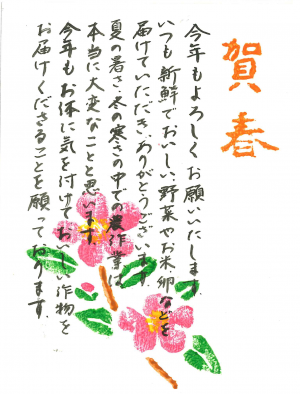 賀春
今年もよろしくお願いいたします。
いつも新鮮でおいしい野菜やお米、卵などを
届けていただき、ありがとうございます。
夏の暑さ、冬の寒さの中での農作業は
本当に大変なことと思います。
今年もお体に気を付けておいしい作物を
お届けくださることを願っております。